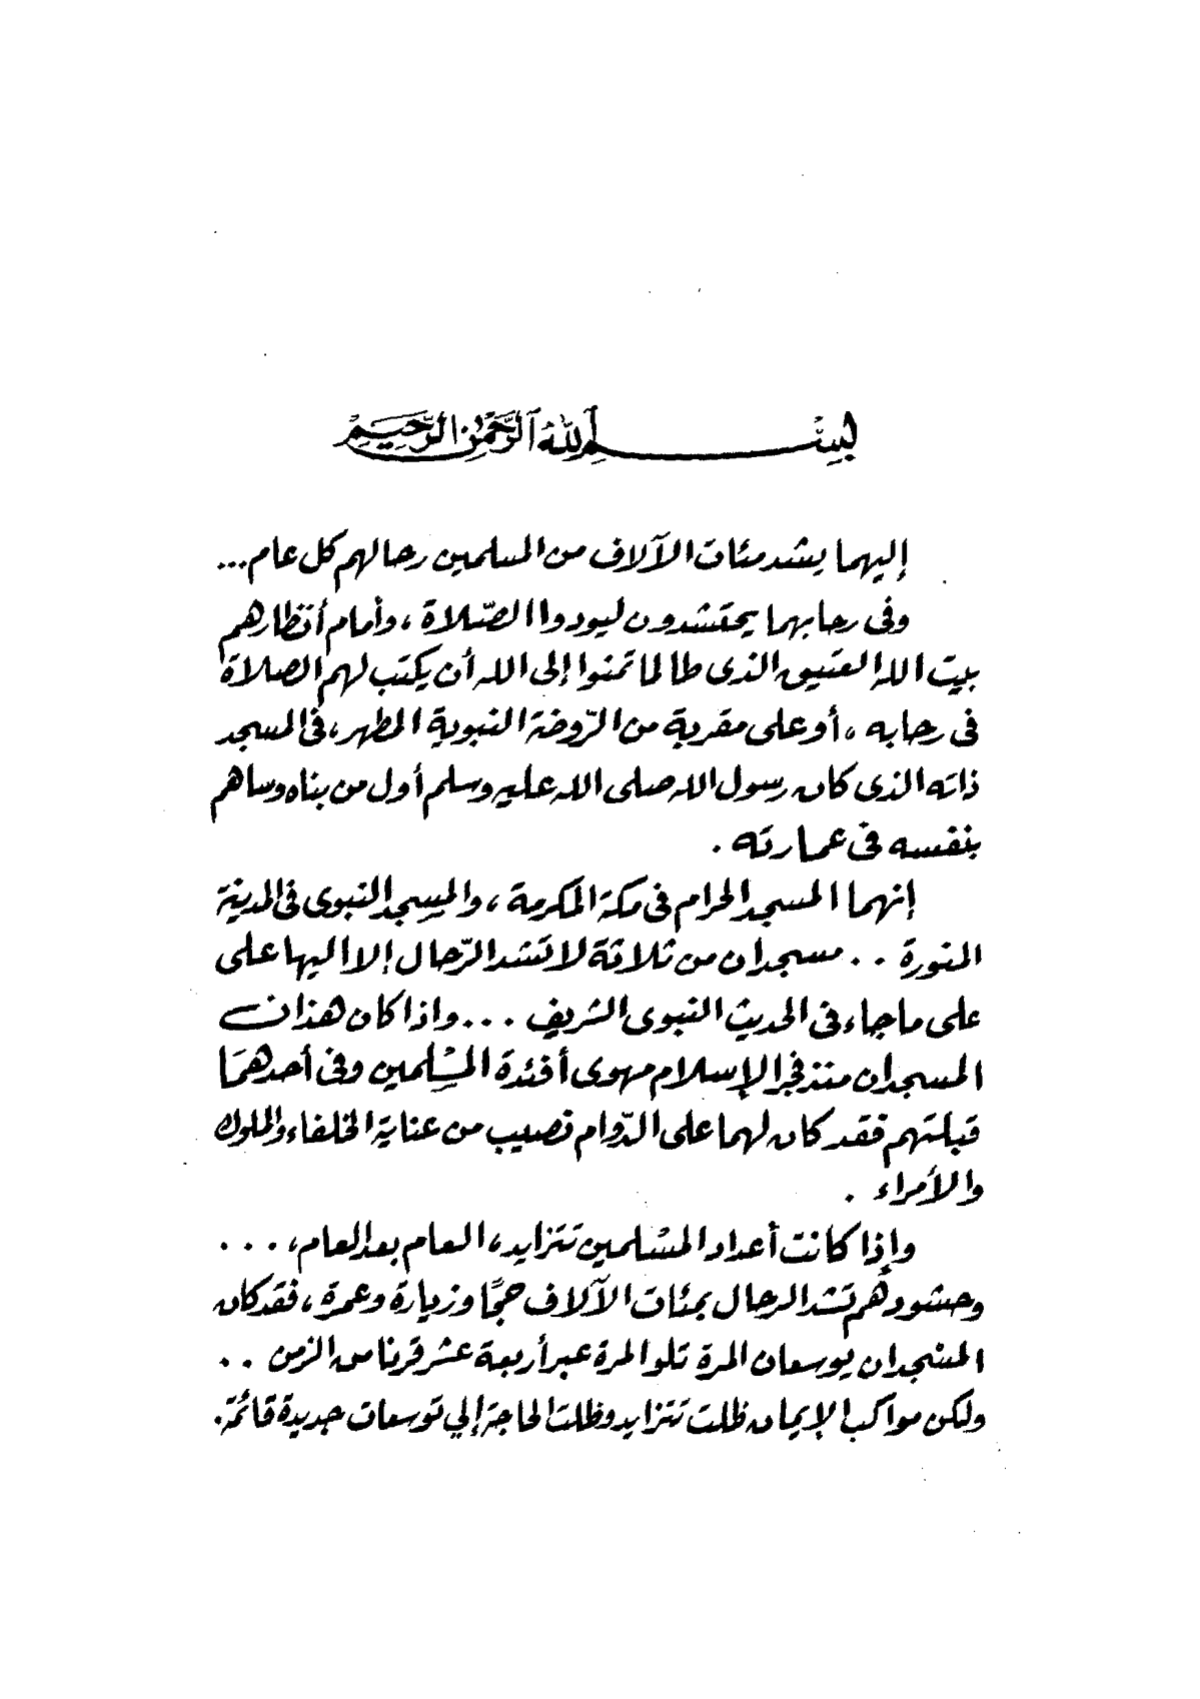 بسم الله الرحمن الرحيم
إليهما يشد مئات الآلاف من المسلمين رحالهم كل عام...
وفى رحابهما يحتشدون ليودوا الصّلاة ، وأمام أنظارهم
بيت الله العتيق الذى طالما تمنوا إلى الله أن يكتب لهم الصلاة
فى رحابه ، أو على مقربة من الرّوضة النبوية المطهر، فى المسجد
ذاته الذى كان رسول الله صلى الله عليه وسلم أول من بناه وساهم
بنفسه فى عمارته .
إنهما المسجد الحرام فى مكة المكرمة ، والمسجد النبوى فى المدينة
المنورة . . مسجدان من ثلاثة لا تشد الرّحال إلا اليها على
على ما جاء فى الحديث النبوى الشريف ... واذا كان هذان
المسجدان منذ فجر الإسلام مهوى أفئدة المسْلمين وفى أحدهمَا
قبلتهم فقد كان لهما على الدّوام نصيب من عناية الخلفاء والملوك
والأمراء .
وإذا كانت أعداد المسْلمين تتزايد، العام بعد العام، ...
وحشودهم تشد الرحال بمئات الآلاف حجًا وزيارة وعمرة ، فقد كان
المسْجدان يوسعان المرة تلو المرة عبر أربعة عشر قرنا من الزمن . .
ولكن مواكب الإيمان ظلت تتزايد وظلت الحاجة إلي توسعات جديدة قائمة.